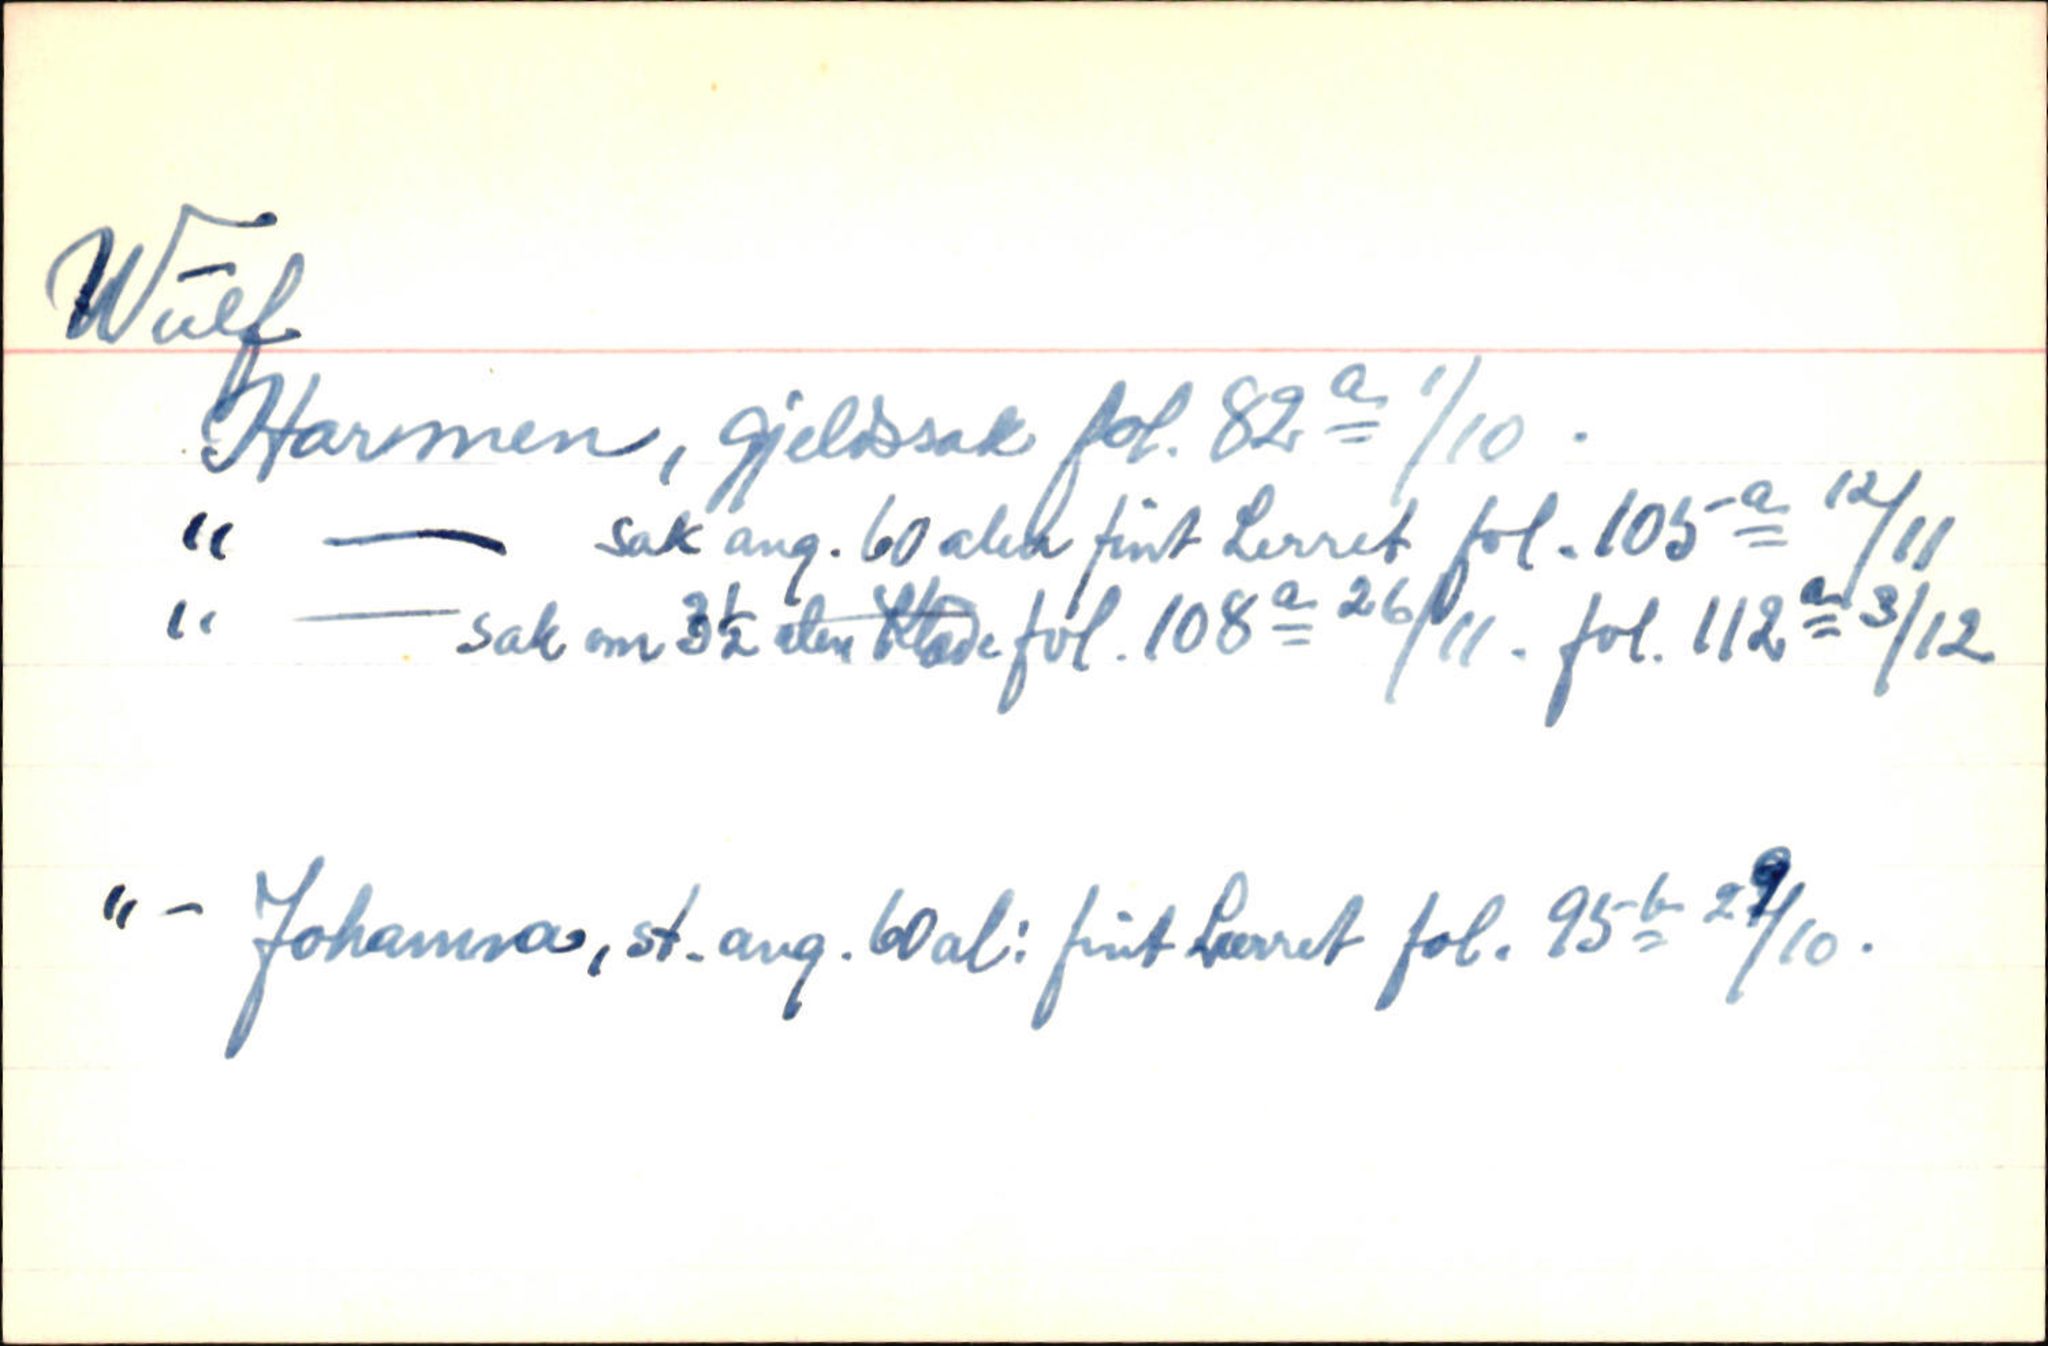 Wulf
Harmen, gjeldssak fol. 82a 1/10.
" — sak ang. 60 alen fint Lerret fol. 105a 12/11
" — sak om 3½ alen Klæde fol. 108a 26/11. fol. 112a 3/12
" - Johanna, st. ang. 60 al: fint Lærret fol. 95b 29/10.